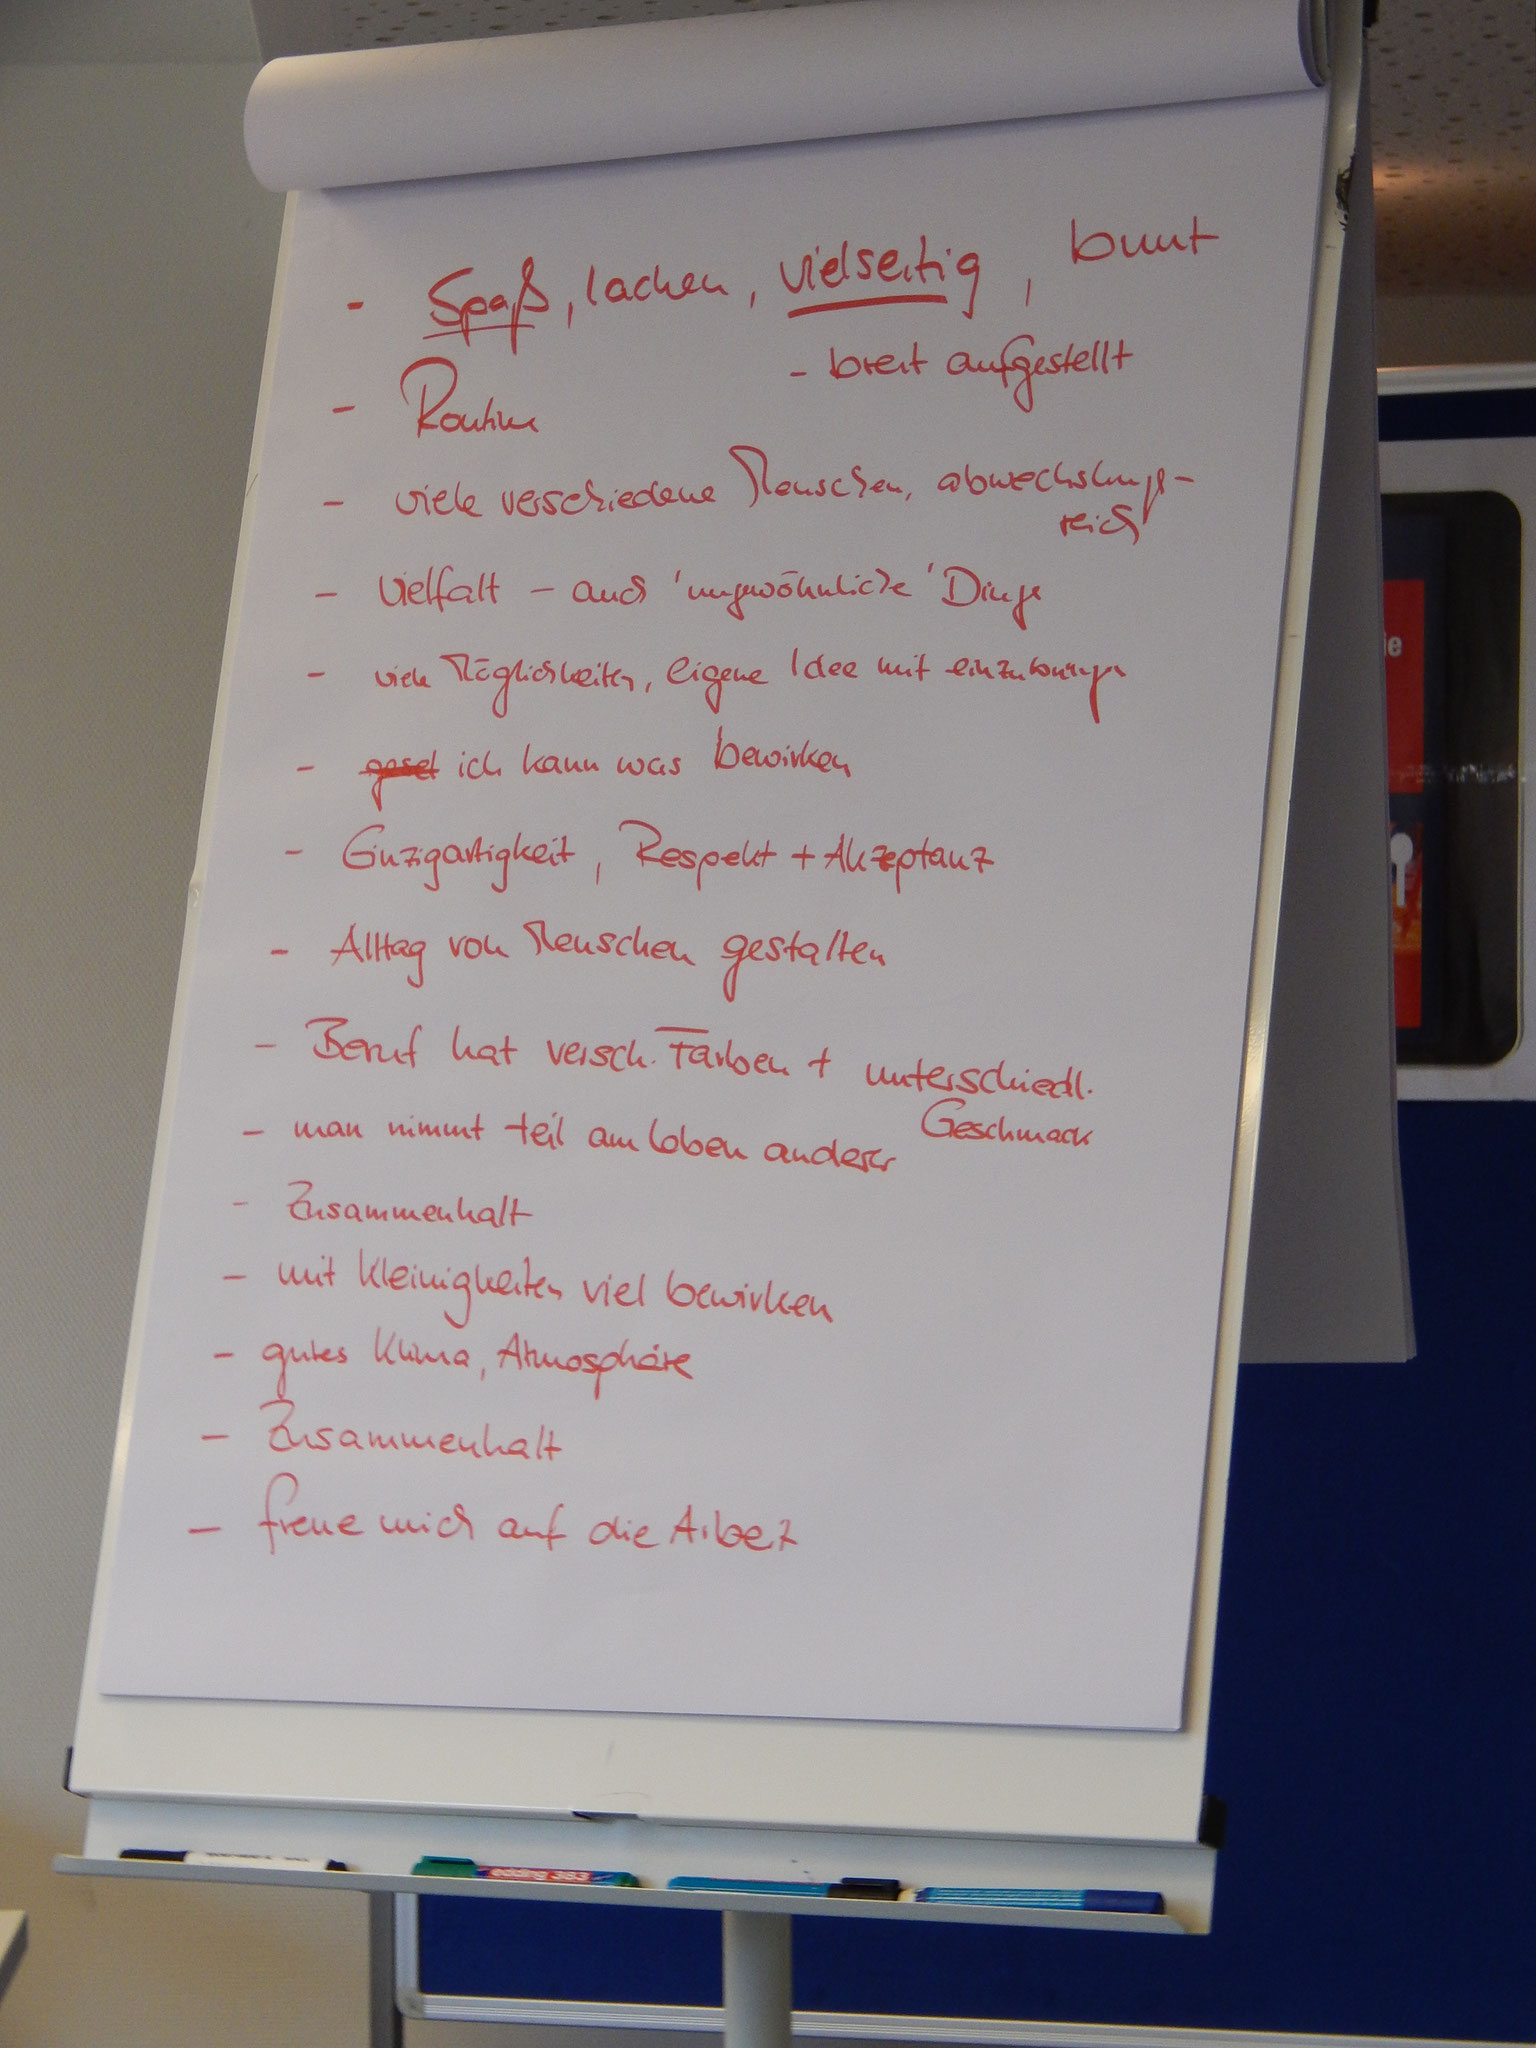 - Spaß, lachen, vielseitig, bunt
- breit aufgestellt
- Routine
- viele verschiedene Menschen, abwechslungs-
reich
- Vielfalt - auch 'ungewöhnliche' Dinge
- viele Möglichkeiten, eigene Idee mit einzubringen
- ich kann was bewirken
- Einzigartigkeit, Respekt + Akzeptanz
- Alltag von Menschen gestalten
- Beruf hat versch. Farben + unterschiedl.
Geschmack
- man nimmt teil am Leben anderer
- Zusammenhalt
- mit Kleinigkeiten viel bewirken
- gutes Klima, Atmosphäre
- Zusammenhalt
- freue mich auf die Arbeit
edding 383